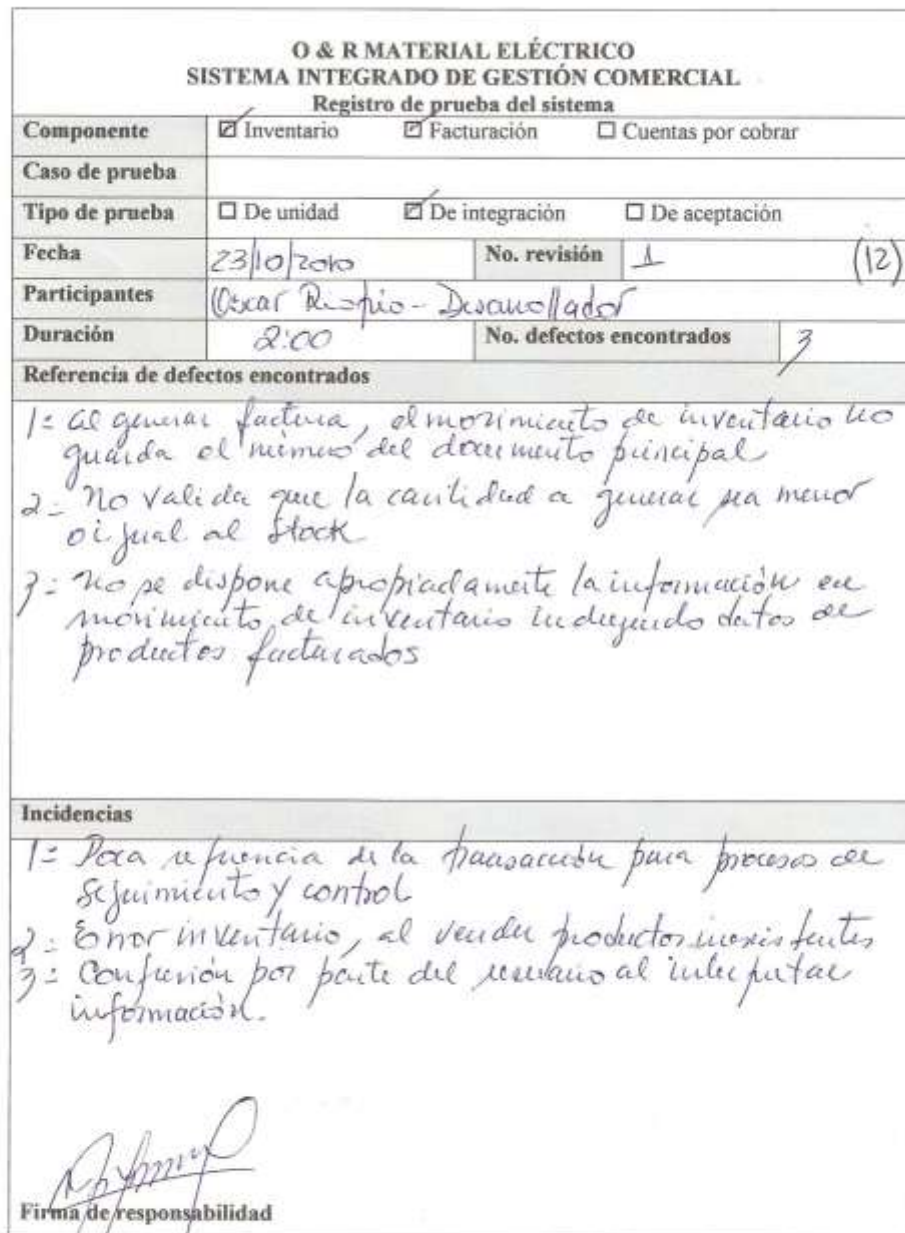 O & R MATERIAL ELÉCTRICO
SISTEMA INTEGRADO DE GESTIÓN COMERCIAL
Registro de prueba del sistema
Componente ☑ Inventario ☑ Facturación ☐ Cuentas por cobrar
Caso de prueba
Tipo de prueba ☐ De unidad ☑ De integración ☐ De aceptación
Fecha 23/10/2010 No. revisión 1 (12)
Participantes Oscar - Desarrollador
Duración 2:00 No. defectos encontrados 3
Referencia de defectos encontrados
1= Al generar factura, el movimiento de inventario no
guarda el número del documento principal
2= No valida que la cantidad a generar sea menor
o igual al Stock
3= No se dispone apropiadamente la información en
movimiento de inventario incluyendo datos de
productos facturados
Incidencias
1= Poca referencia de la transacción para procesos de
Seguimiento y control
2= Error inventario, al vender productos inexistentes
3= Confusión por parte del usuario al interpretar
información.
Firma de responsabilidad